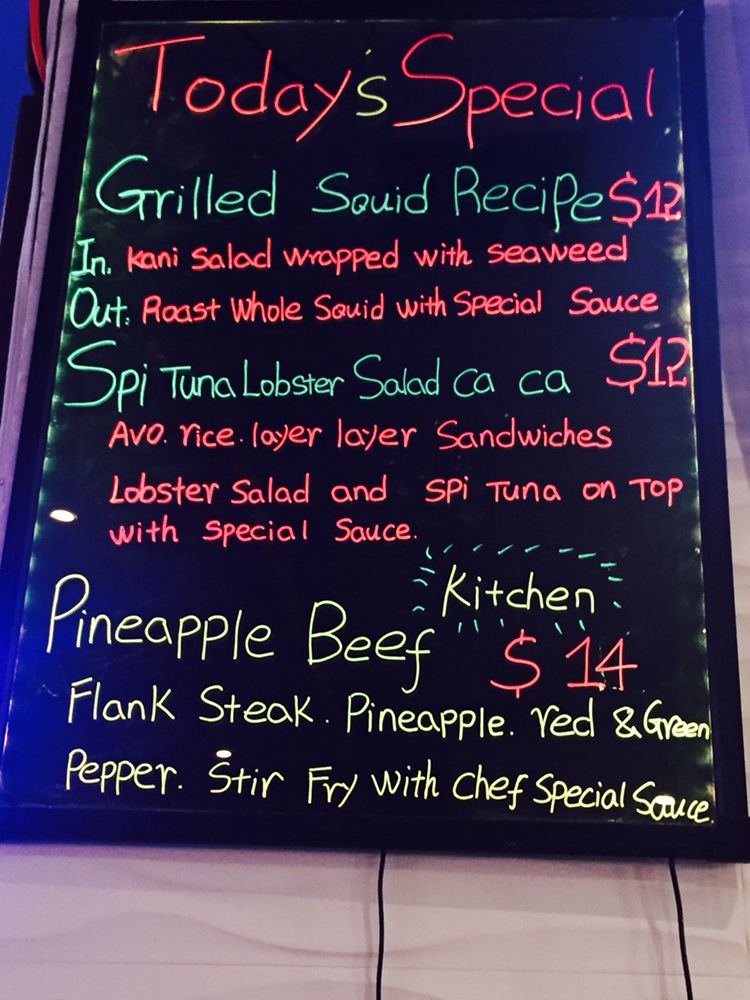 Today's Special
Grilled Squid Recipe $12
In. Kani Salad wrapped with seaweed
Out: Roast Whole Squid with Special Sauce
Spi Tuna Lobster Salad Ca Ca $12
Avo. rice. layer layer Sandwiches
Lobster Salad and Spi Tuna on Top
with Special Sauce.
Kitchen
Pineapple Beef $14
Flank Steak. Pineapple. red & Green
Pepper. Stir Fry with Chef Special Sauce.